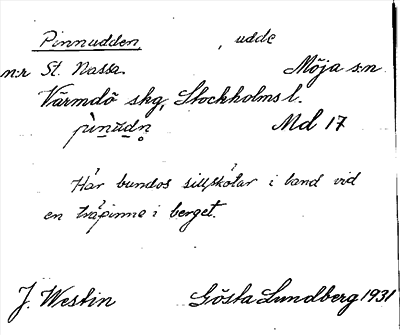 Pinnudden, udde
n:r St. Nassa. Möja s:n
Värmdö skg, Stockholms l.
pìnùdn̥ Md 17
Här bundos sillskötar i land vid
en träpinne i berget.
J. Westin Gösta Lundberg 1931